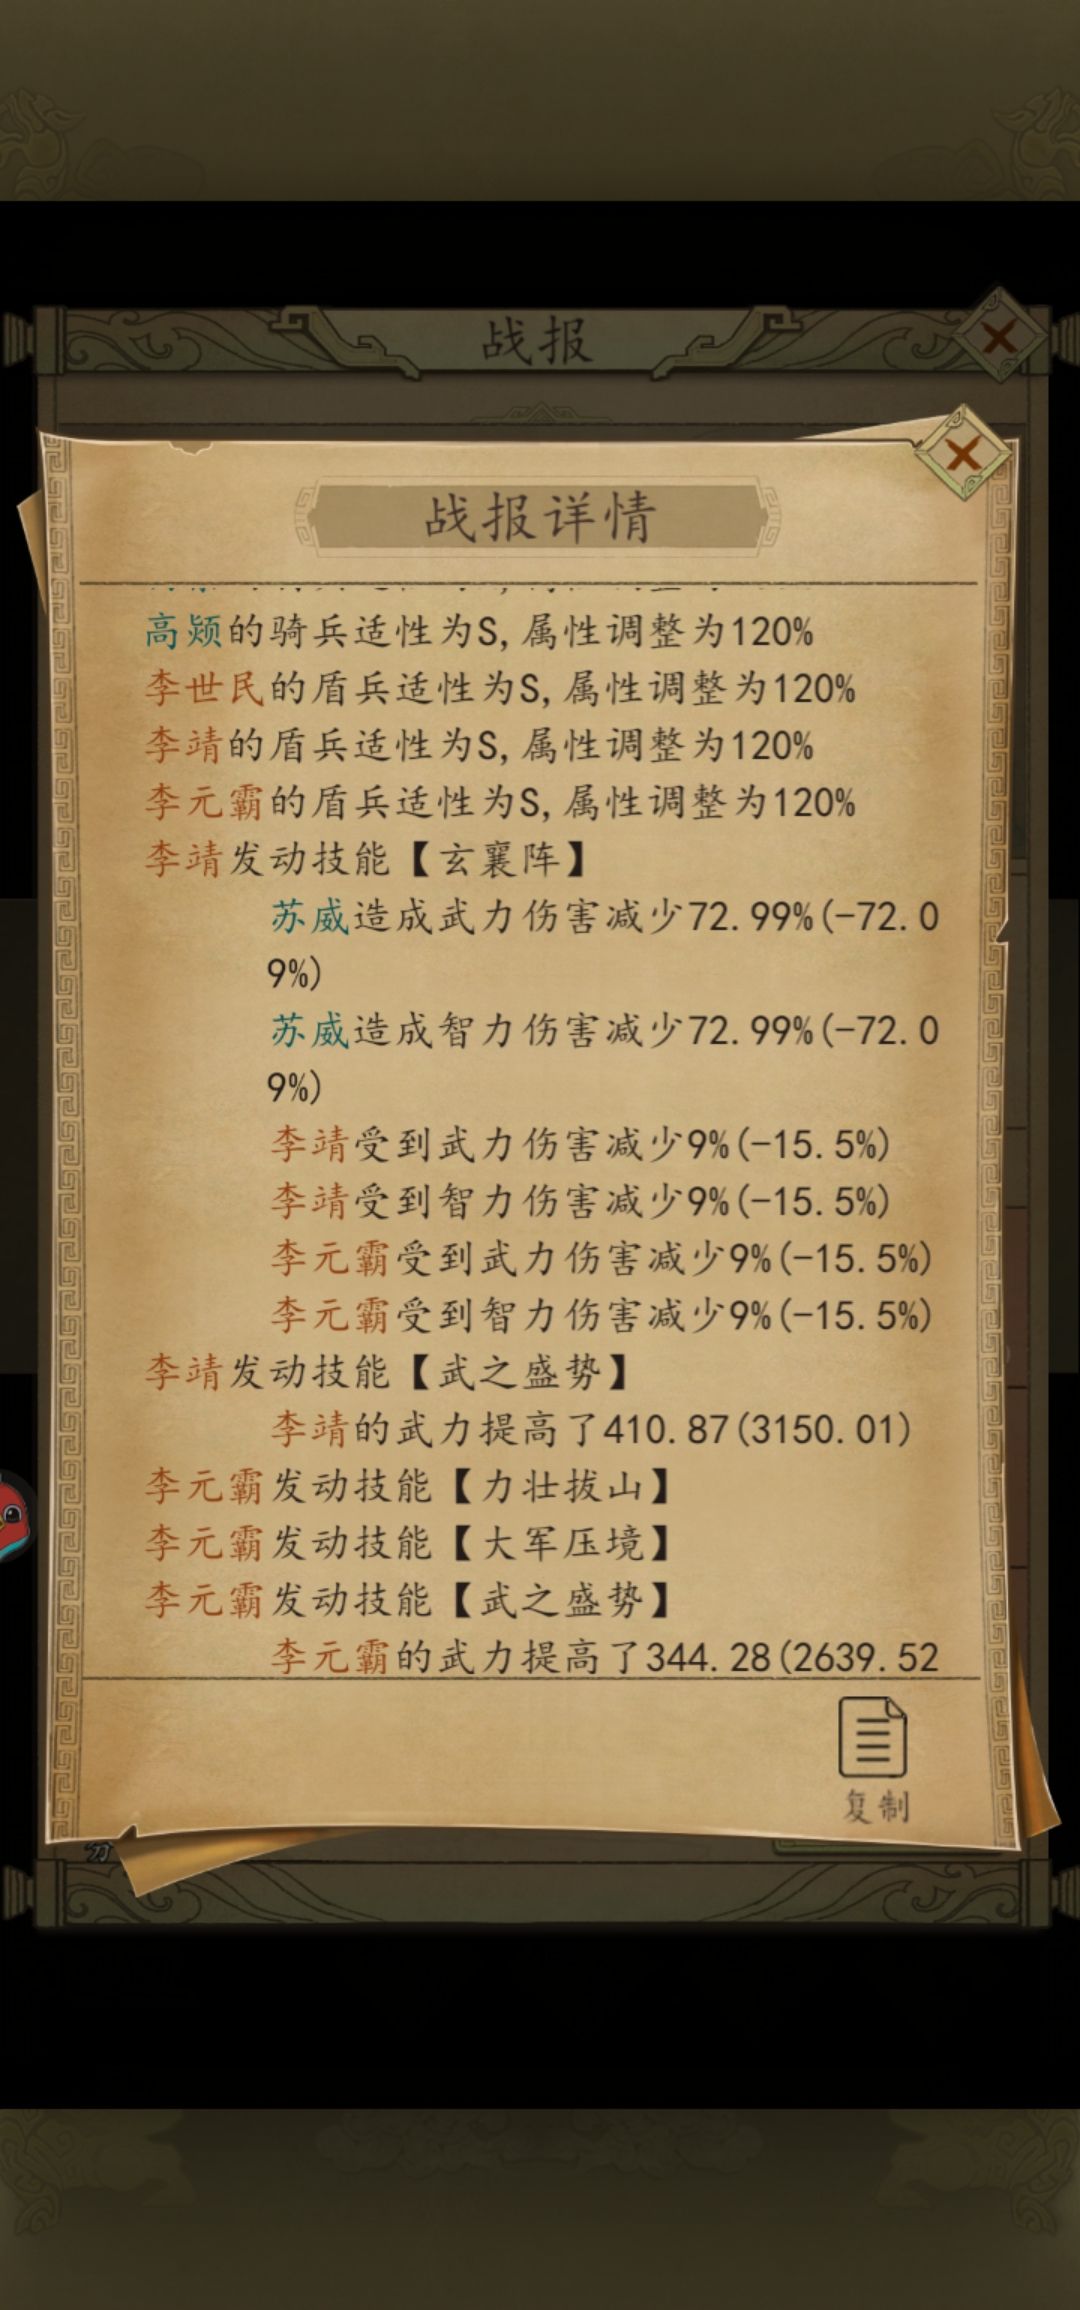 战报
战报详情
高颎的骑兵适性为S,属性调整为120%
李世民的盾兵适性为S,属性调整为120%
李靖的盾兵适性为S,属性调整为120%
李元霸的盾兵适性为S,属性调整为120%
李靖发动技能【玄襄阵】
苏威造成武力伤害减少72.99%(-72.0
9%)
苏威造成智力伤害减少72.99%(-72.0
9%)
李靖受到武力伤害减少9%(-15.5%)
李靖受到智力伤害减少9%(-15.5%)
李元霸受到武力伤害减少9%(-15.5%)
李元霸受到智力伤害减少9%(-15.5%)
李靖发动技能【武之盛势】
李靖的武力提高了410.87(3150.01)
李元霸发动技能【力壮拔山】
李元霸发动技能【大军压境】
李元霸发动技能【武之盛势】
李元霸的武力提高了344.28(2639.52
复制